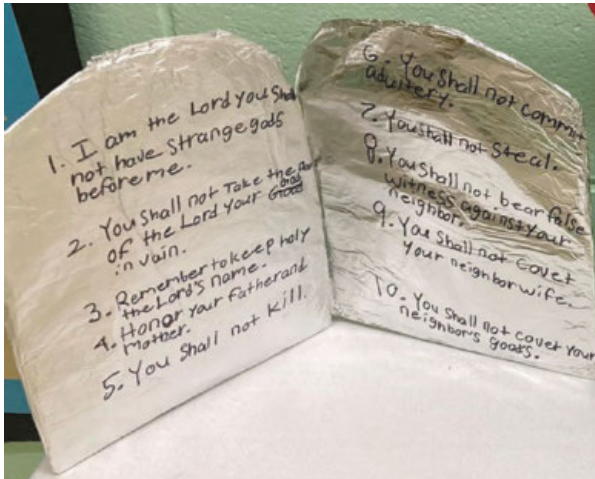 1. I am the Lord you Shall
not have Strange gods
before me.
2. You Shall not Take the
of the Lord Your God
in vain.
3. Remember to keep holy
the Lord's name.
4. Honor Your Father and
mother.
5. You Shall not Kill.
6. You Shall not commit
adultery.
7. You Shall not Steal.
8. You Shall not bear false
witness against your
neighbor.
9. You Shall not Covet
your neighbor wife.
10. You Shall not covet your
neighbor's goods.